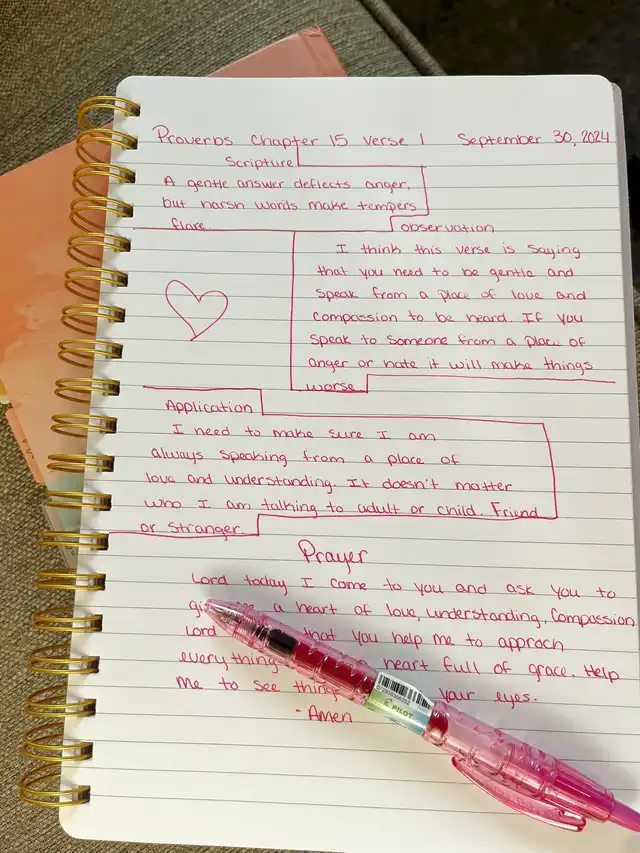 Proverbs Chapter 15 Verse 1 September 30, 2024
Scripture
A gentle answer deflects anger,
but harsh words make tempers
flare.
observation
I think this verse is saying
that you need to be gentle and
speak from a place of love and
compassion to be heard. If you
speak to someone from a place of
anger or hate it will make things
worse
Application
I need to make sure I am
always speaking from a place of
love and understanding. It doesn't matter
who I am talking to adult or child. Friend
or stranger.
Prayer
Lord today I come to you and ask you to
a heart of love, understanding, Compassion
Lord that you help me to approch
everything heart full of grace. Help
me to see your eyes.
- Amen
PILOT